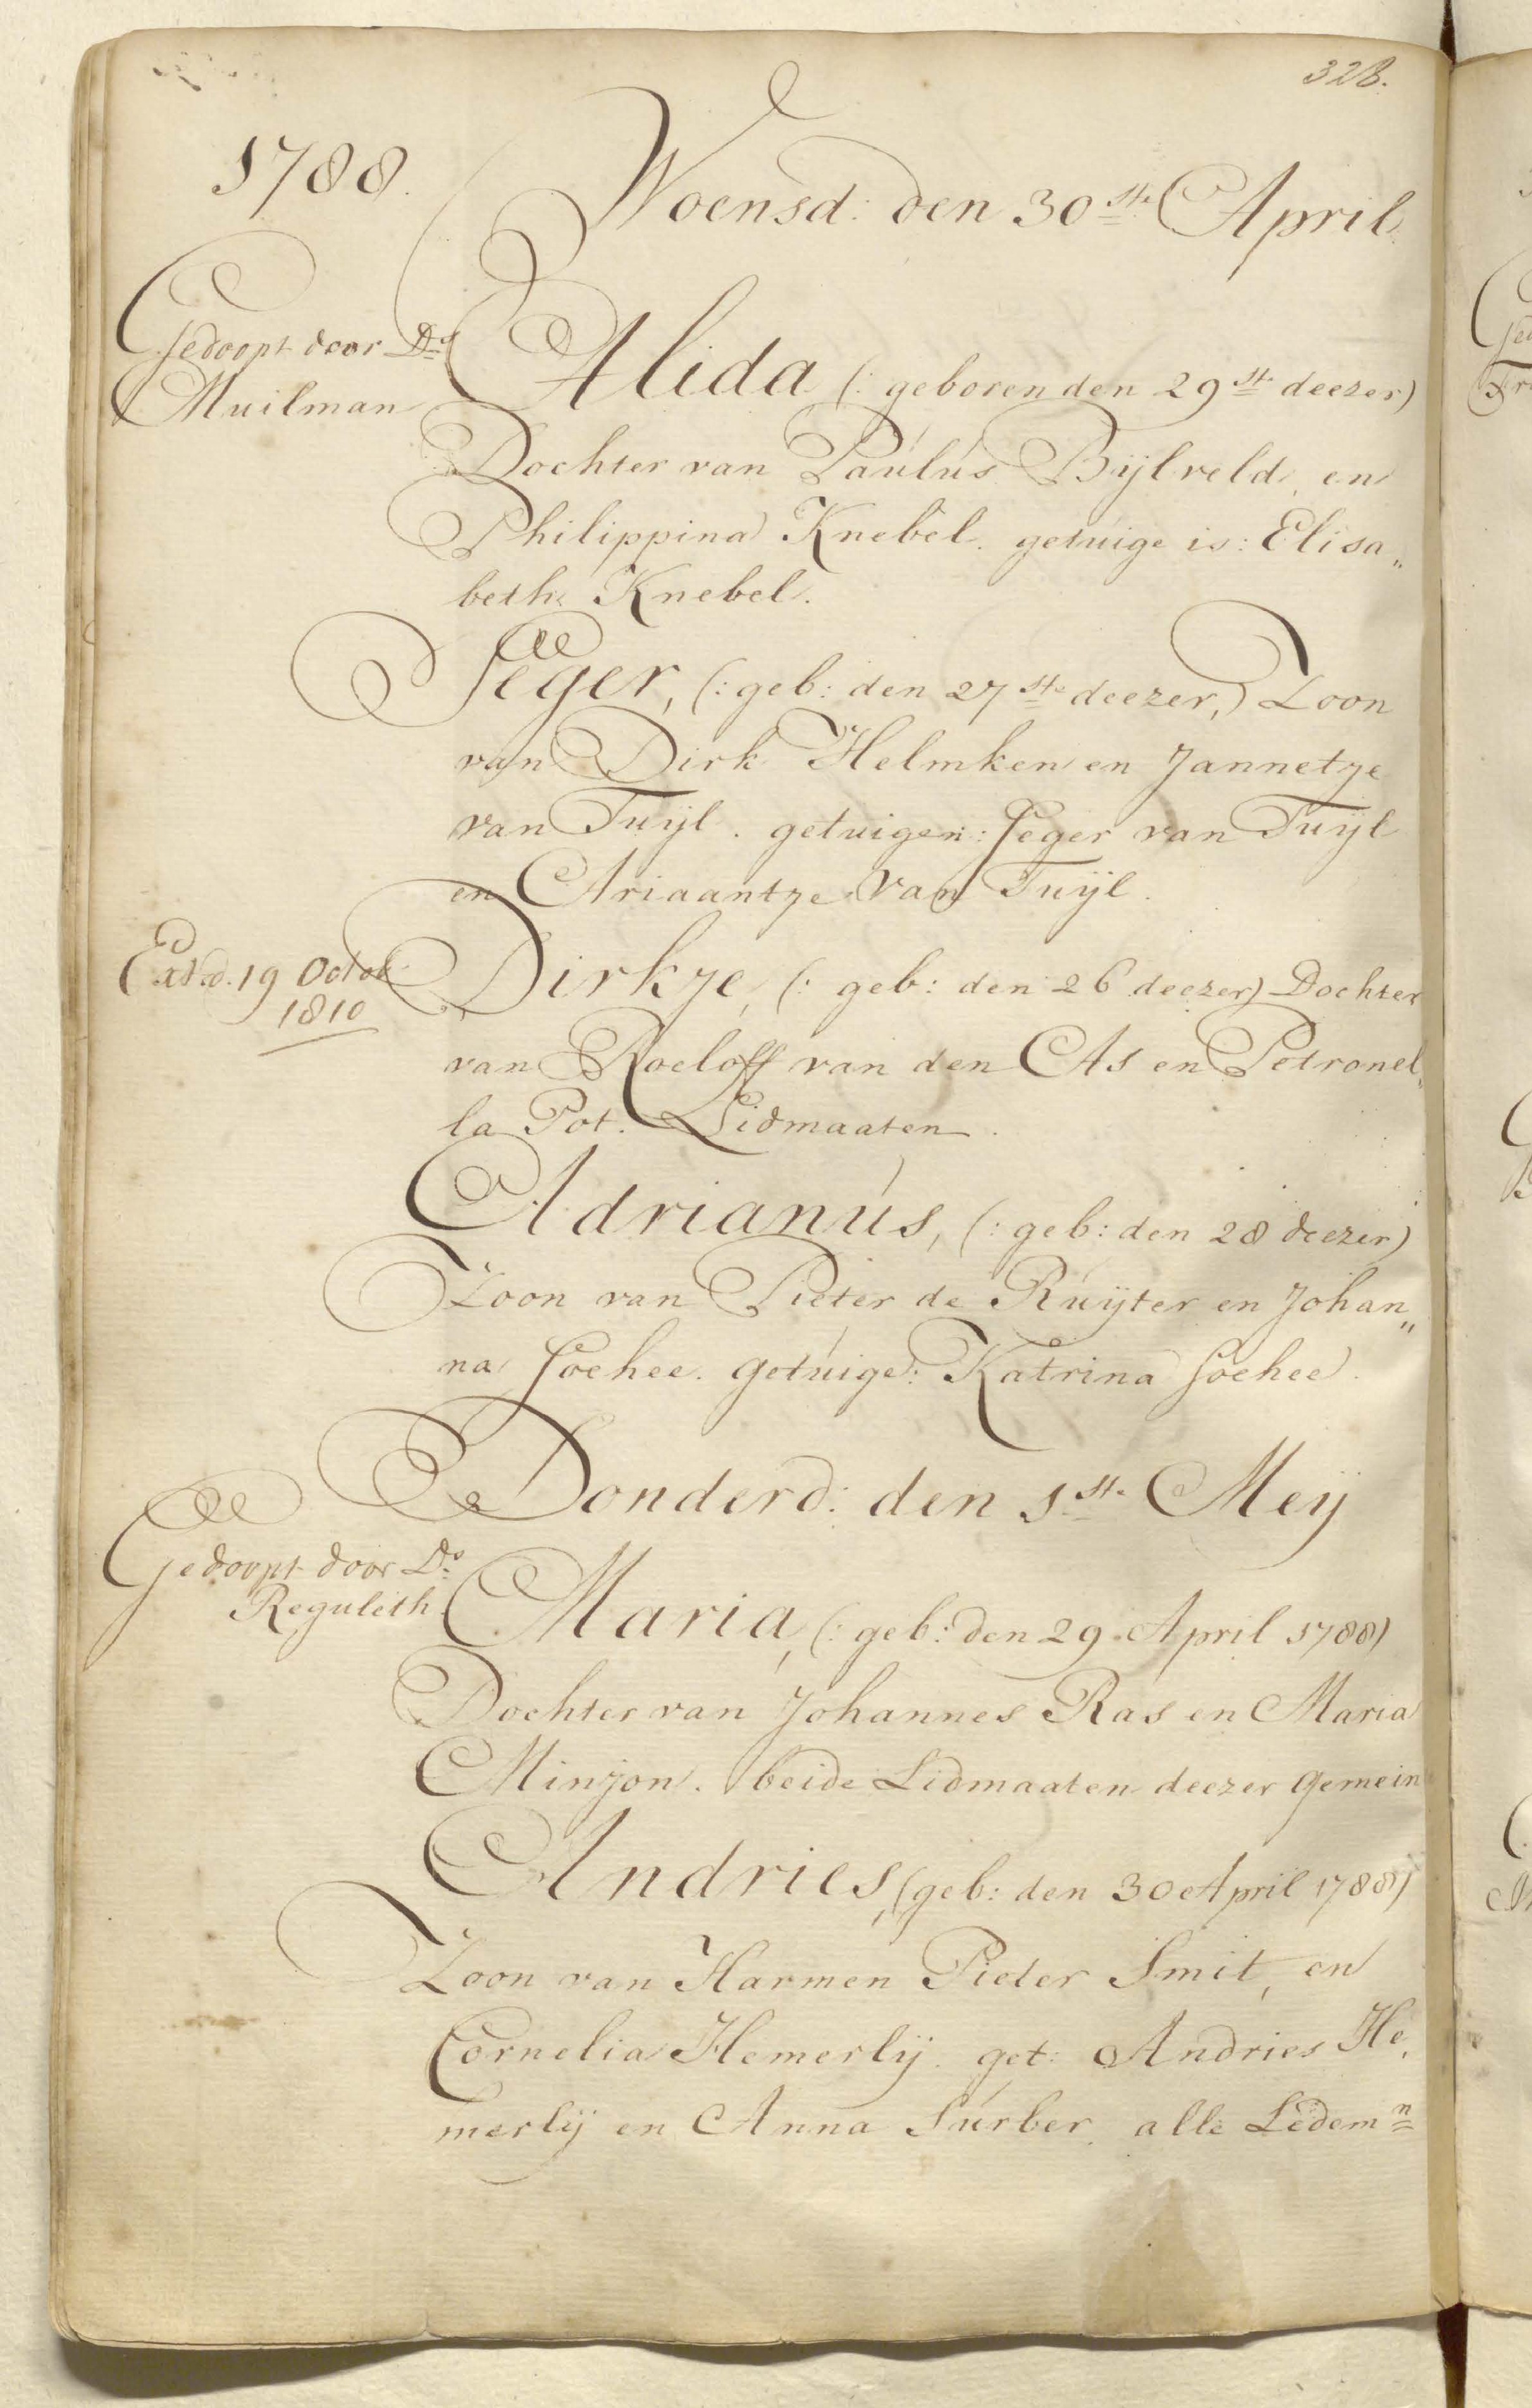 328.
1788.
Woensd: den 30ste April
Gedoopt door Ds
Muilman
Alida (: geboren den 29ste deezer)
Dochter van Paulus Bijlveld en
Philippina Knebel. getuige is: Elisa„
beth Knebel.
Seger, (: geb: den 27ste deezer,) Zoon
van Dirk Helmken en Jannetje
van Tuijl. getuigen: Seger van Tuijl
en Ariaantje van Tuijl.
Extd. 19 Octob
1810
Dirkje, (: geb: den 26 deezer) Dochter
van Roeloff van den As en Petronel„
la Pot. Lidmaaten.
Adrianus, (: geb: den 28 deezer)
Zoon van Pieter de Ruijter en Johan„
na Soehee. getuige: Katrina Soehee.
Donderd: den 1ste Meij
Gedoopt door Ds
Reguleth
Maria, (: geb: den 29 April 1788)
Dochter van Johannes Ras en Maria
Minjon. beide Lidmaaten deezer gemein
Andries, (geb: den 30 April 1788)
Zoon van Harmen Pieter Smit, en
Cornelia Hemerlij. get: Andries He„
merlij en Anna Surber. alle Ledemn